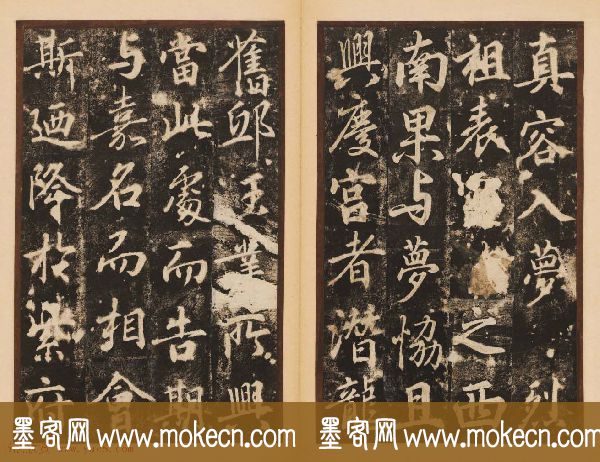 真容入夢烈
祖表之西
南果与夢恊且
興慶宮者潛龍
舊邸王業所興
當此處而告期
与嘉名而相會
斯迺降於紫府
墨客网 www.mokecn.com
墨客网 www.mokecn.com